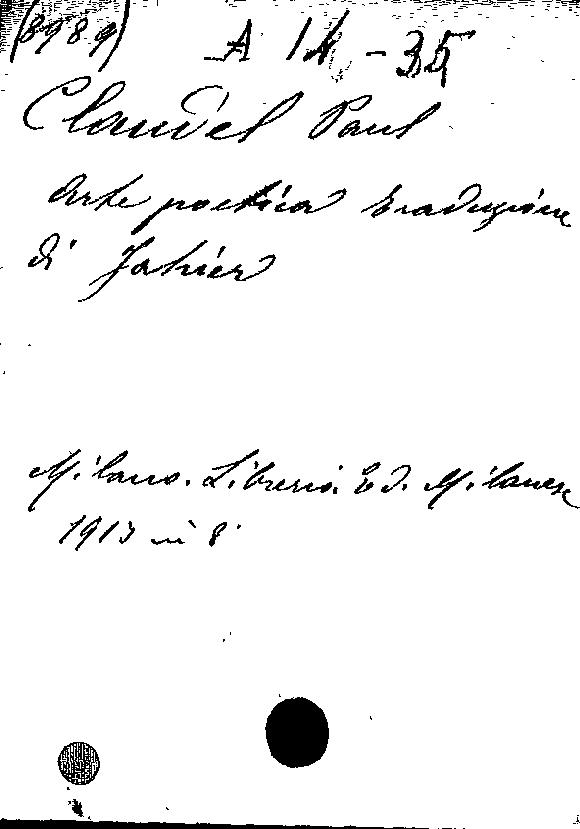 (8989)
A 14 - 35
Claudel Paul
Arte poetica traduzione
di Jahier
Milano. Libreria Ed. Milanese
1913 in 8°